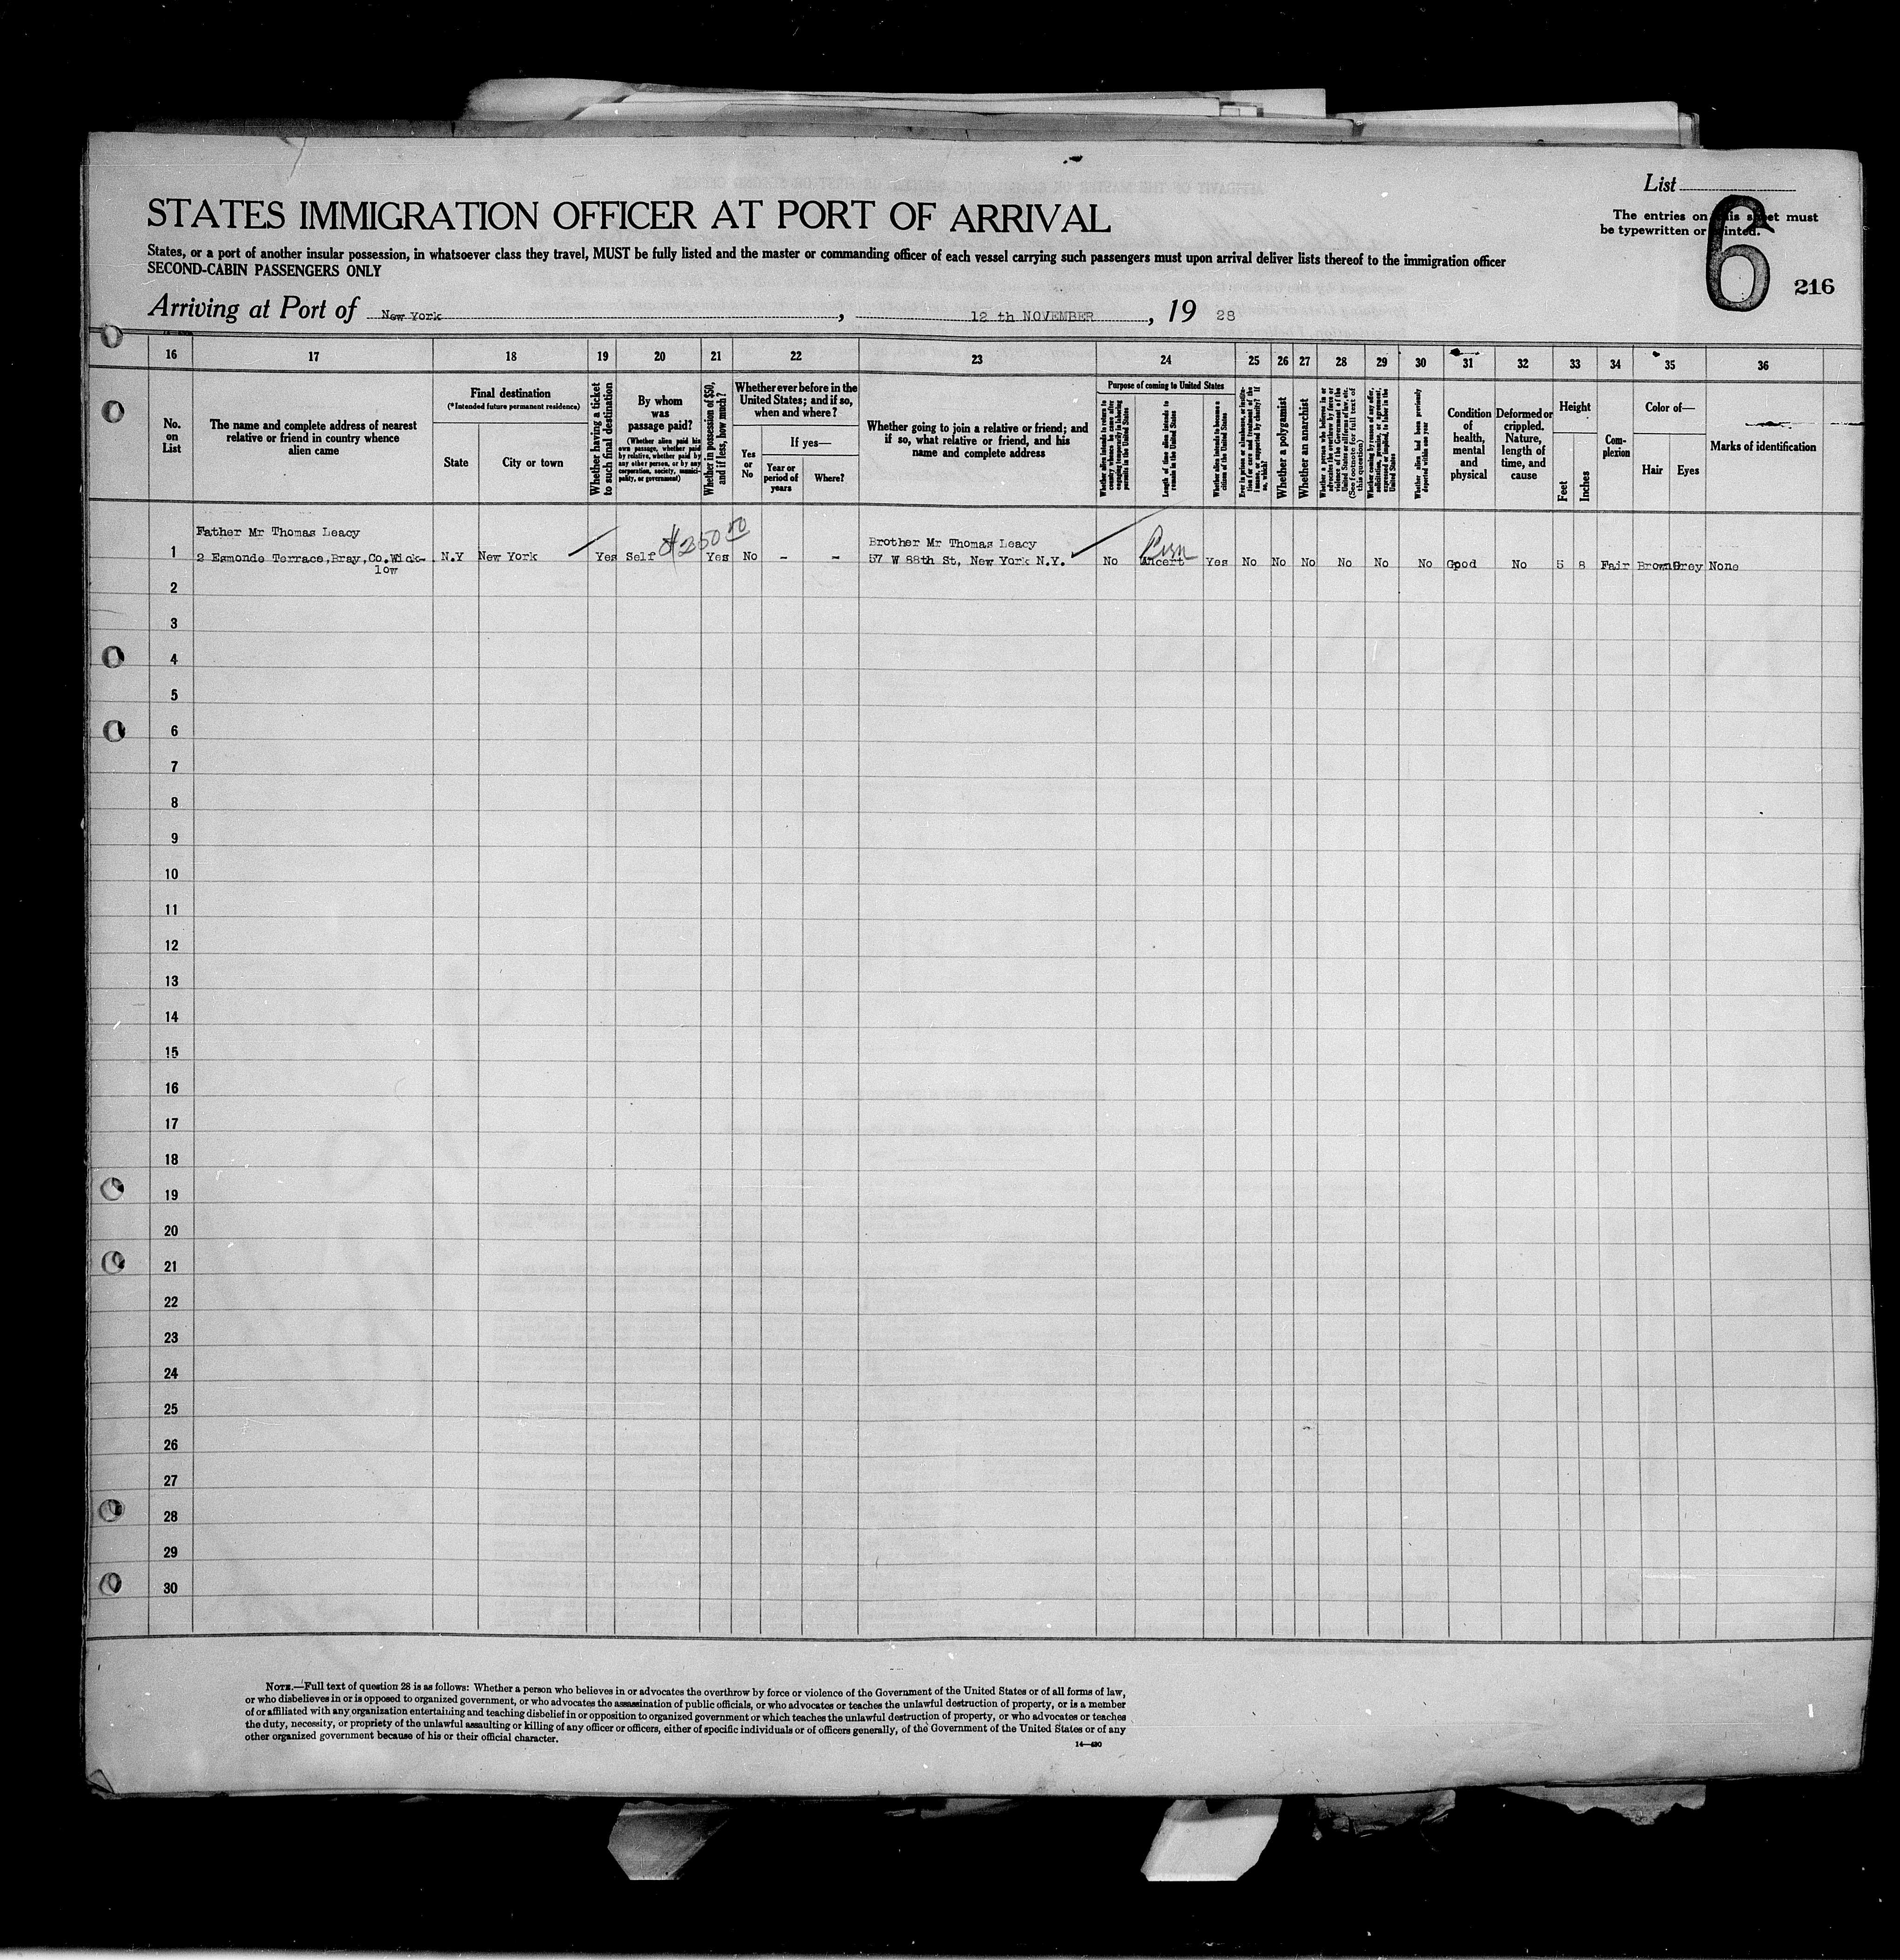 List
The entries on this sheet must
be typewritten or printed.
6
216
STATES IMMIGRATION OFFICER AT PORT OF ARRIVAL
States, or a port of another insular possession, in whatsoever class they travel, MUST be fully listed and the master or commanding officer of each vessel carrying such passengers must upon arrival deliver lists thereof to the immigration officer
SECOND-CABIN PASSENGERS ONLY
Arriving at Port of New York, 12 th NOVEMBER, 19 28
16 17 18 19 20 21 22 23 24 25 26 27 28 29 30 31 32 33 34 35 36
No.
on
List
The name and complete address of nearest
relative or friend in country whence
alien came
Final destination
(*Intended future permanent residence)
State
City or town
Whether having a ticket
to such final destination
By whom
was
passage paid?
(Whether alien paid his
own passage, whether paid
by relative, whether paid by
any other person, or by any
corporation, society, munici-
pality, or government)
Whether in possession of $50,
and if less, how much?
Whether ever before in the
United States; and if so,
when and where?
Yes
or
No
If yes—
Year or
period of
years
Where?
Whether going to join a relative or friend; and
if so, what relative or friend, and his
name and complete address
Purpose of coming to United States
Whether alien intends to return to
country whence he came after
engaging temporarily in laboring
pursuits in the United States
Length of time alien intends to
remain in the United States
Whether alien intends to become a
citizen of the United States
Ever in prison or almshouse, or institu-
tion for care and treatment of the
insane, or supported by charity? If
so, which?
Whether a polygamist
Whether an anarchist
Whether a person who believes in or
advocates the overthrow by force or
violence of the Government of the
United States or all forms of law, etc.
(See footnote for full text of
this question)
Whether coming by reason of any offer,
solicitation, promise, or agreement,
expressed or implied, to labor in the
United States
Whether alien had been previously
deported within one year
Condition
of
health,
mental
and
physical
Deformed or
crippled.
Nature,
length of
time, and
cause
Height
Feet
Inches
Com-
plexion
Color of—
Hair
Eyes
Marks of identification
Father Mr Thomas Leacy
$250 00
Brother Mr Thomas Leacy
1 2 Esmonde Terrace,Bray,Co.Wick- N.Y New York Yes Self Yes No - - 57 W 88th St, New York N.Y. No Uncert Yes No No No No No No Good No 5 8 Fair Brown Grey None
low
2
3
4
5
6
7
8
9
10
11
12
13
14
15
16
17
18
19
20
21
22
23
24
25
26
27
28
29
30
NOTE.—Full text of question 28 is as follows: Whether a person who believes in or advocates the overthrow by force or violence of the Government of the United States or of all forms of law,
or who disbelieves in or is opposed to organized government, or who advocates the assassination of public officials, or who advocates or teaches the unlawful destruction of property, or is a member
of or affiliated with any organization entertaining and teaching disbelief in or opposition to organized government or which teaches the unlawful destruction of property, or who advocates or teaches
the duty, necessity, or propriety of the unlawful assaulting or killing of any officer or officers, either of specific individuals or of officers generally, of the Government of the United States or of any
other organized government because of his or their official character.
14—430